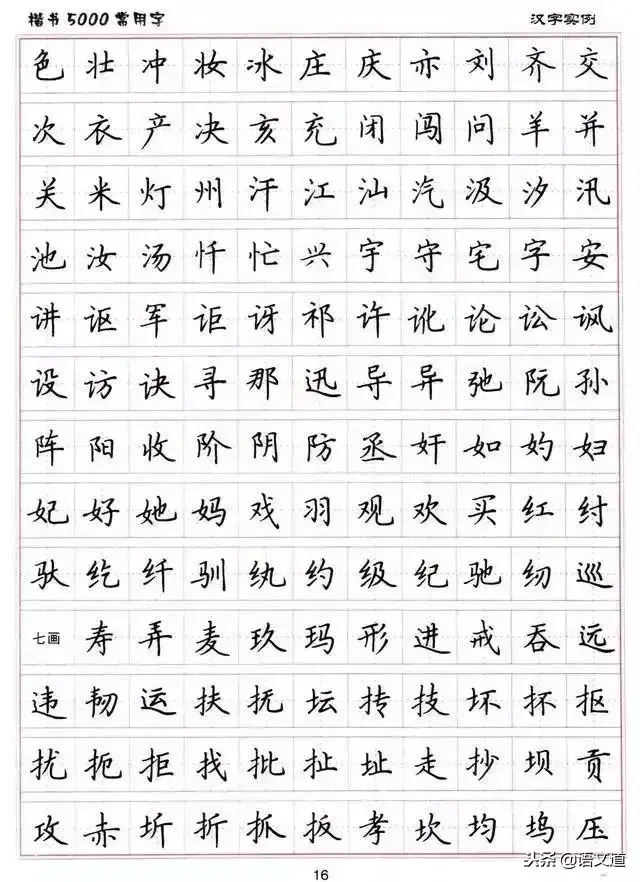 楷书5000常用字 汉字实例
色壮冲妆冰庄庆亦刘齐交
次衣产决亥充闭闯问羊并
关米灯州汗江汕汽汲汐汛
池汝汤忏忙兴宇守宅字安
讲讴军讵讶祁许讹论讼讽
设访诀寻那迅导异弛阮孙
阵阳收阶阴防丞奸如妁妇
妃好她妈戏羽观欢买红纣
驮纥纤驯纨约级纪驰纫巡
七画 寿弄麦玖玛形进戒吞远
违韧运扶抚坛抟技坏抔抠
扰扼拒找批扯址走抄坝贡
攻赤圻折抓扳孝坎均坞压
16
头条@语文道